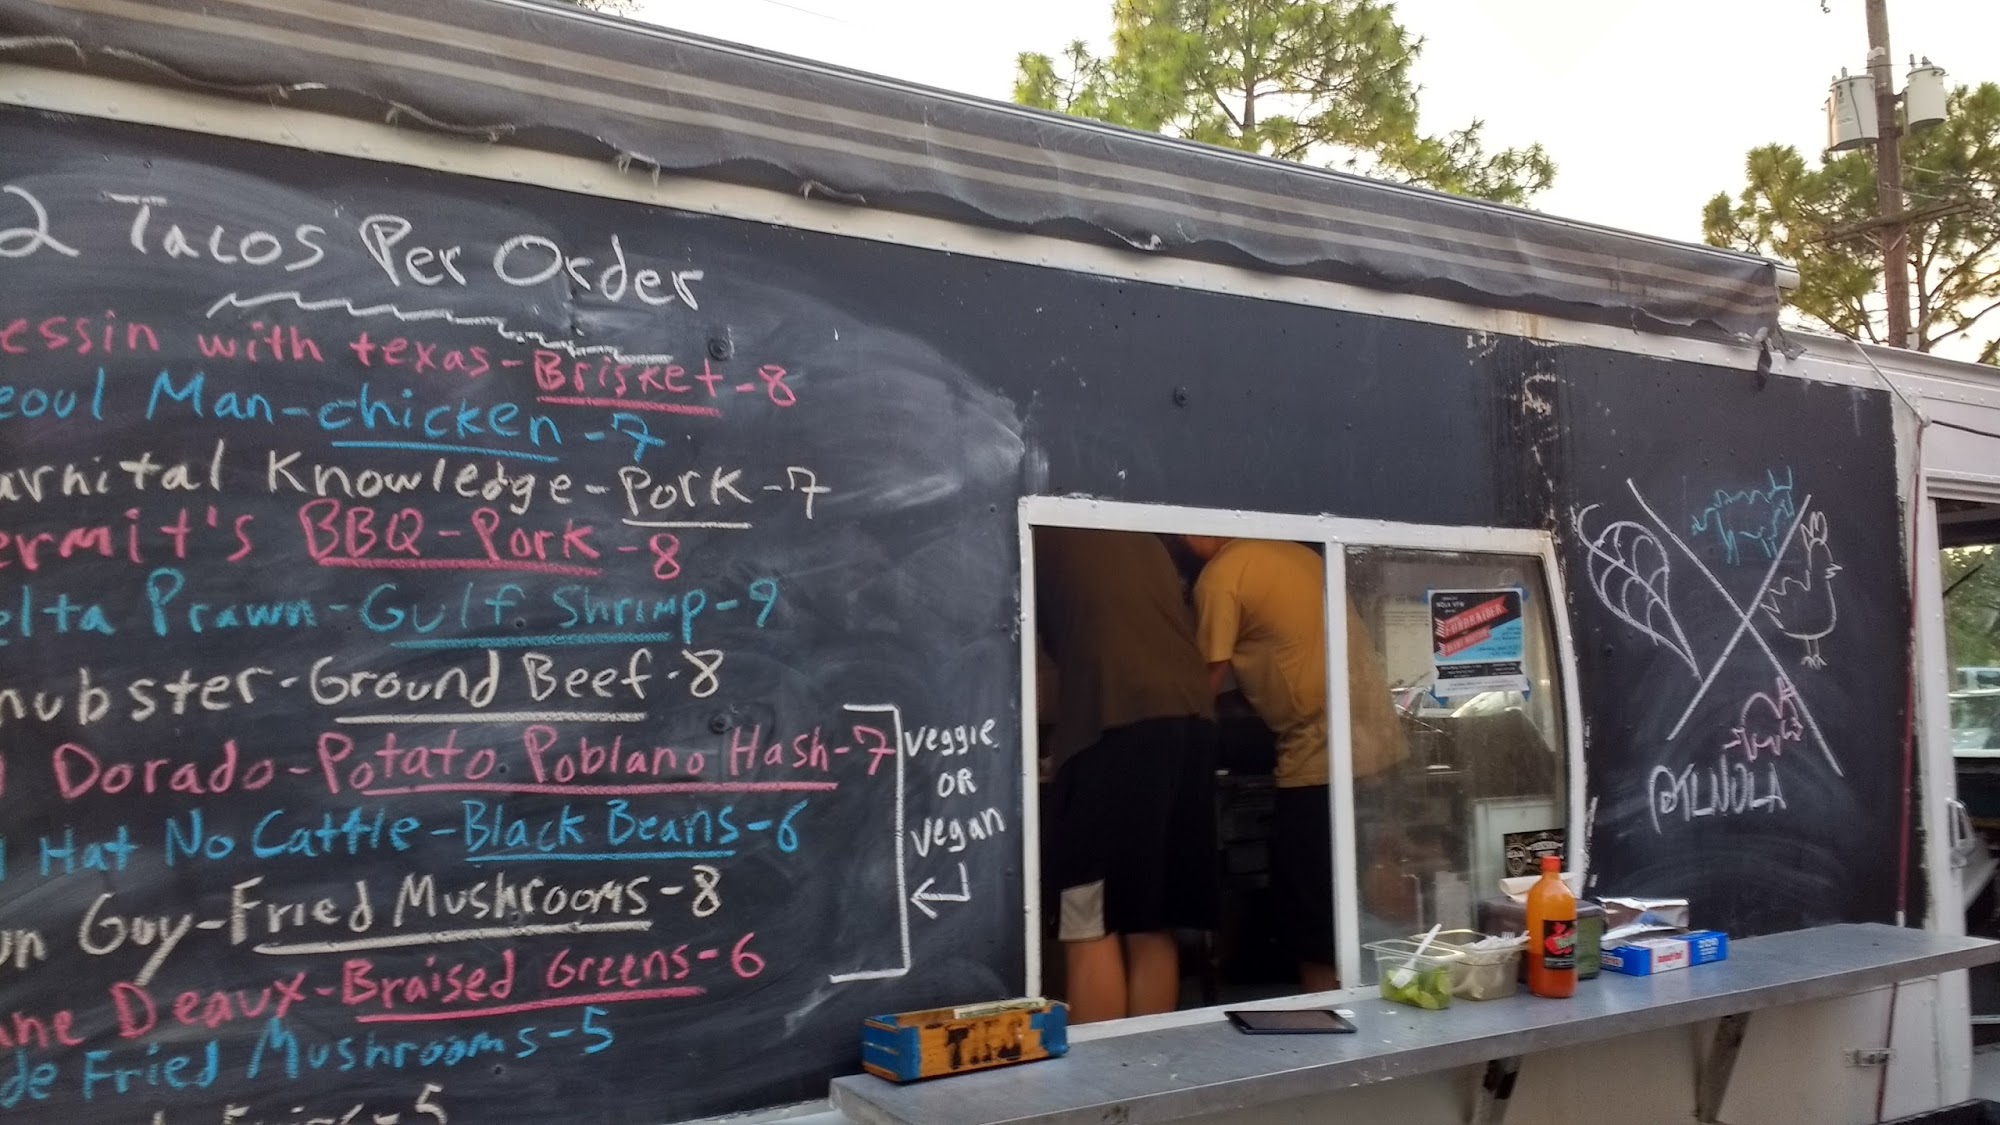 2 TACOS Per Order
essin with texas-Brisket-8
eoul Man-chicken-7
arnital Knowledge-Pork-7
ermit's BBQ-Pork-8
elta Prawn-Gulf Shrimp-9
hubster-Ground Beef-8
l Dorado-Potato Poblano Hash-7
l Hat No Cattle-Black Beans-6
un Guy-Fried Mushrooms-8
ane Deaux-Braised Greens-6
de Fried Mushrooms-5
Fries-5
veggie
OR
vegan
@TLNOLA
FUNDRAISER
TIPS